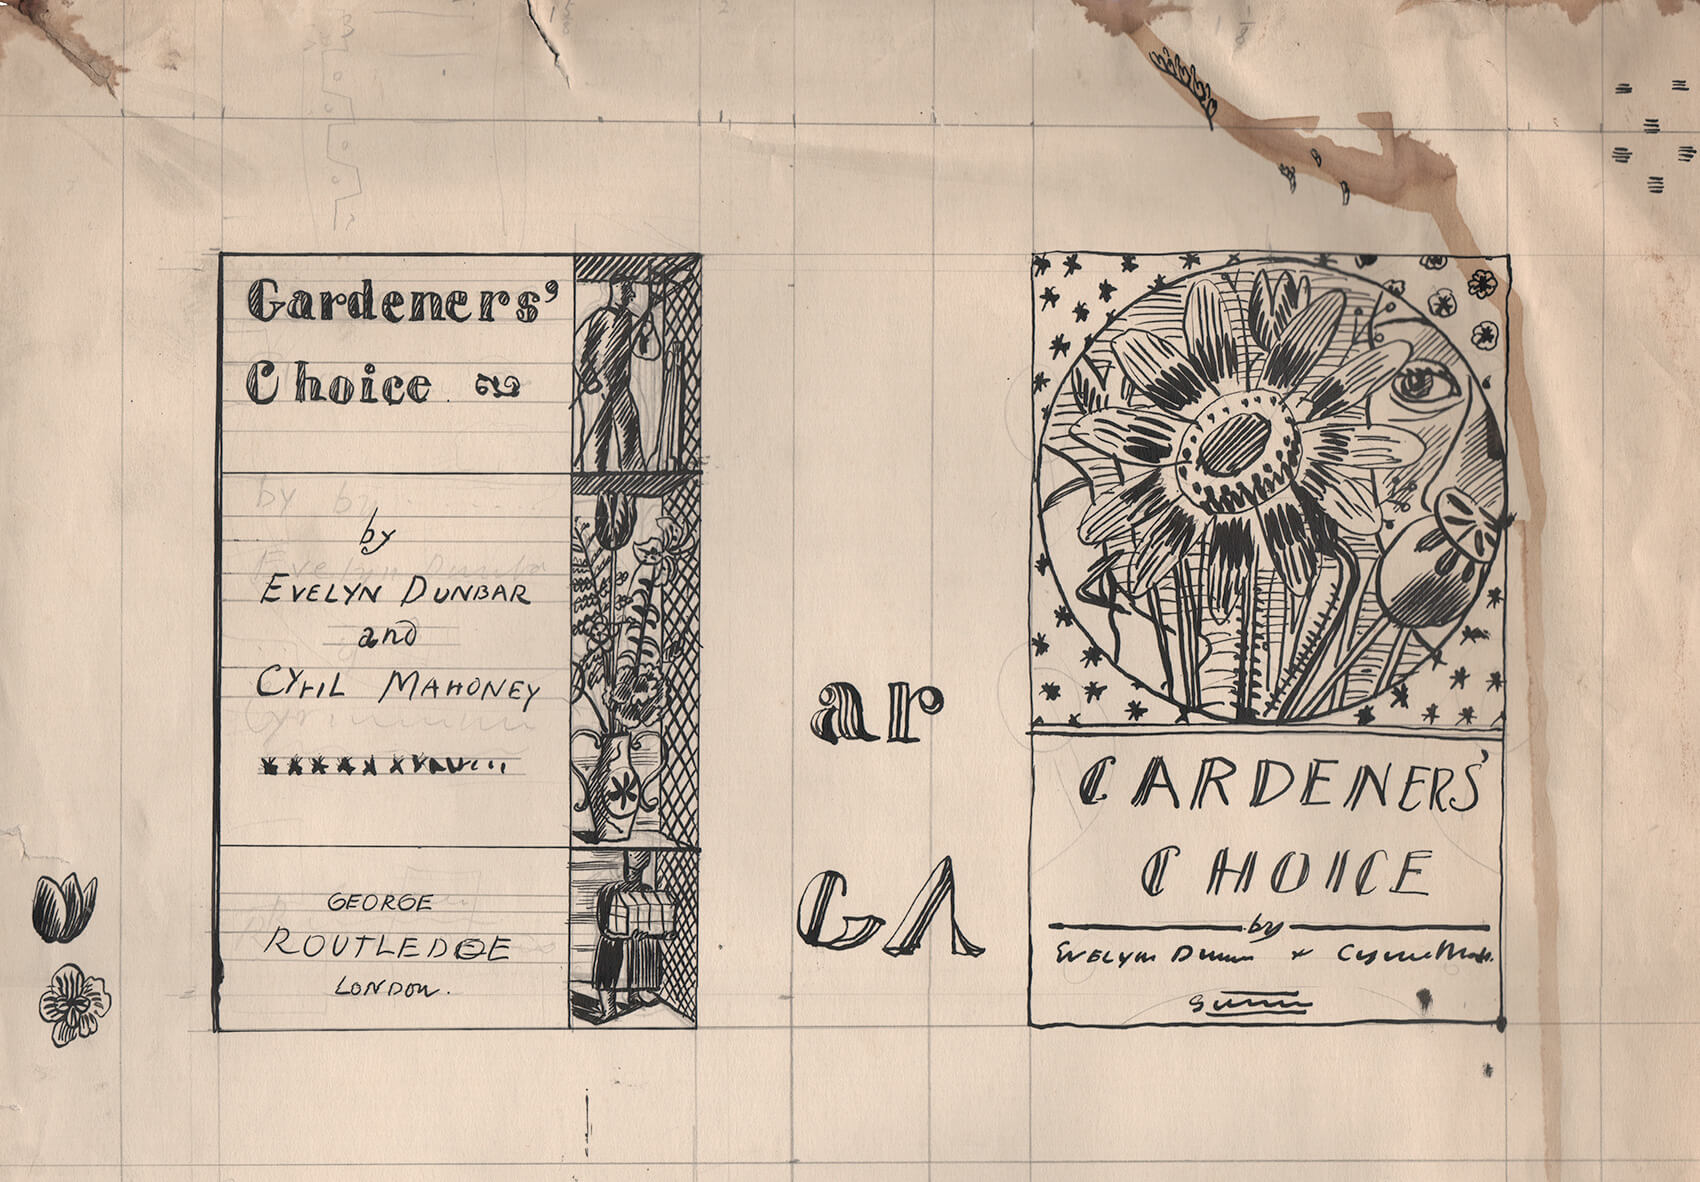 Gardeners'
Choice
by by
by
Evelyn Dunba
EVELYN DUNBAR
and
CYrIL MAHONEY
GEORGE
ROUTLEDGE
LONDON.
ar
GA
GARDENERS'
CHOICE
by
EVELYN
3
2